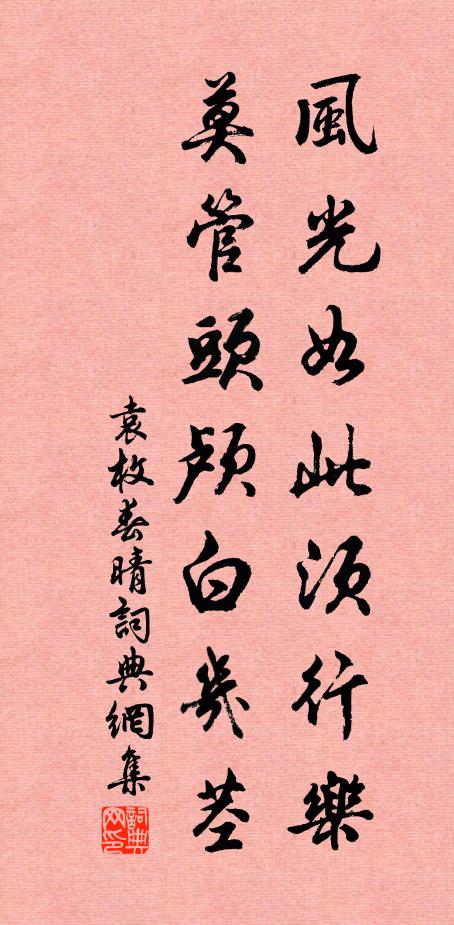 風光如此須行樂
莫管頭顱白幾莖
袁枚春晴詞典網集
詞典網印